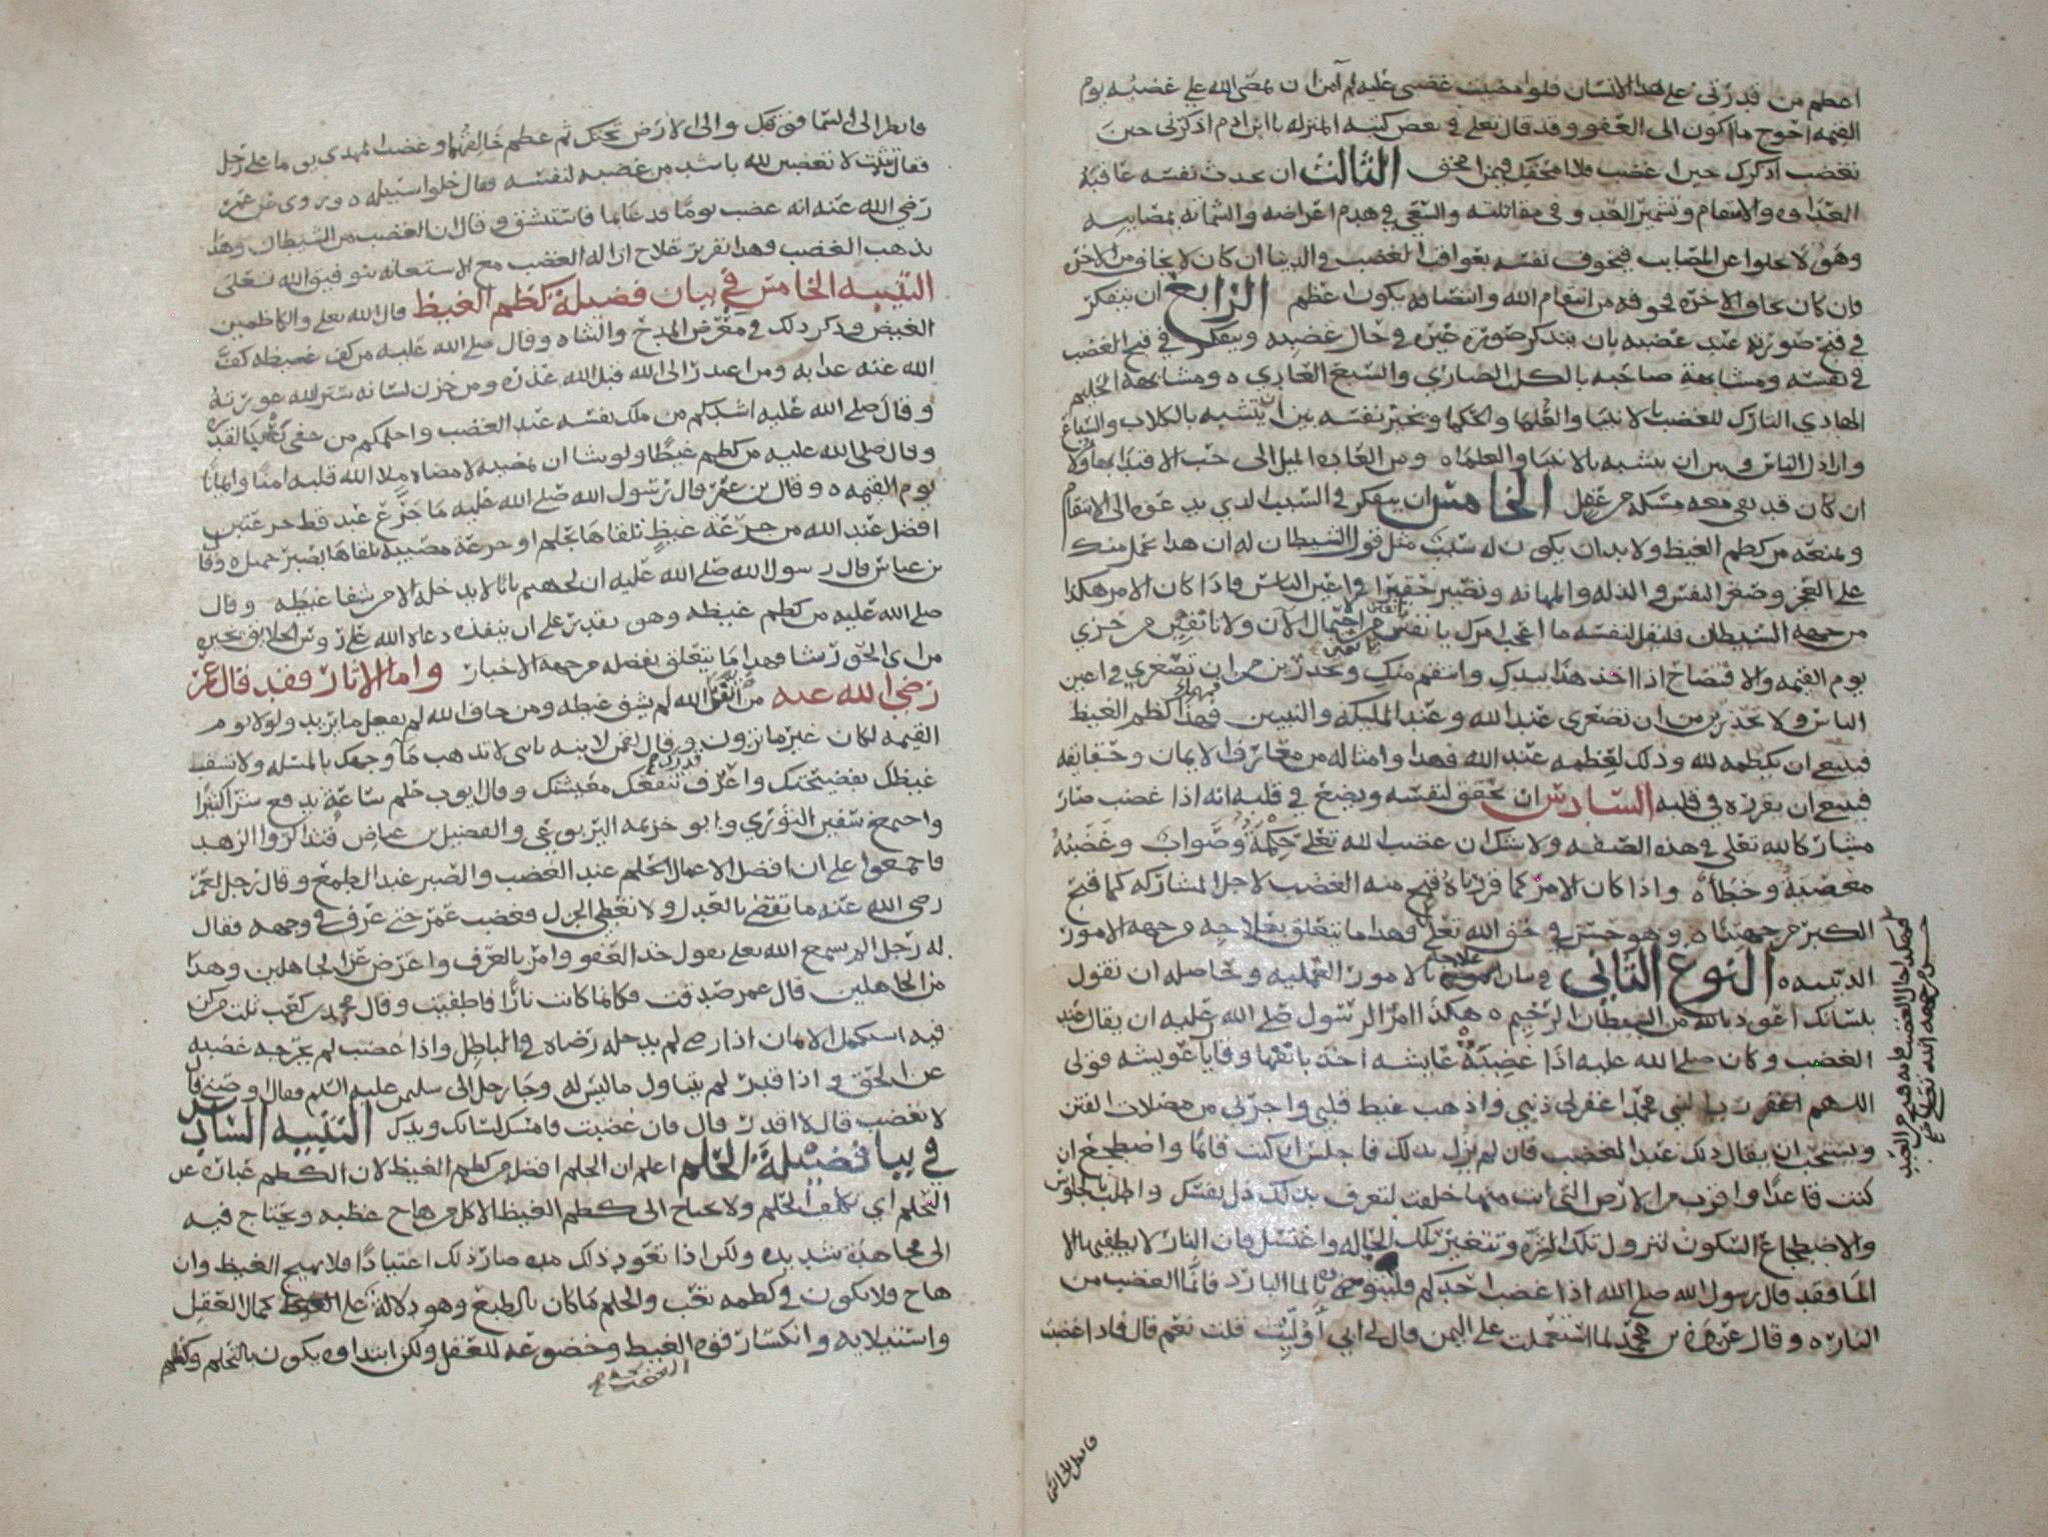 اعظم من قدرتي على هذا الانسان فلو امضيت غضبي عليه لم آمن ان يمضي الله علي غضبه يوم
القيمه احوج ما اكون الى العفو وقد قال تعلى في بعض كتبه المنزله يا ابن ادم اذكرني حين
تغضب اذكرك حين اغضب فلا امحقك فيمن امحق الثالث ان يحدث نفسه عاقبة
العداوه والانتقام وتشمير العدو في مقابلته والسعي في هدم اغراضه والشماته بمصايبه
وهو لا يخلوا عن المصايب فيخوف نفسه بعواقب الغضب في الدنيا ان كان لا يخاف من الاخرة
فان كان يخاف الاخره فخوفه من انتقام الله وانتصافه يكون اعظم الرابع ان يتفكر
في قبح صورته عند غضبه بان يتذكر صورة غيره في حال غضبه ويتفكر في قبح الغضب
في نفسه ومشابهة صاحبه بالكلب الضاري والسبع العادي ه ومشابهة الحليم
الهادي التارك للغضب بالانبيا والعلما والحكما ويخير نفسه بين ان يتشبه بالكلاب والسباع
واراذل الناس وبين ان يتشبه بالانبيا والعلما ه ومن العاده الميل الى حب الاقتدا بهاولا
ان كان قد بقي معه مسكه من عقل الخامس ان يتفكر في السبب الذي يدعوه الى الانتقام
ويمنعه من كظم الغيظ ولا بد ان يكون له سبب مثل قول الشيطان له ان هذا يحمل منك
على العجز وصغر النفس والذله والمهانه وتصير حقيرا في اعين الناس فاذا كان الامر هكذا
من جهة الشيطان فليقل لنفسه ما اعجب امرك يا نفس تانفين من الاحتمال الآن ولا تانفين من خزي
يوم القيمه والافتضاح اذا اخذ هذا بيدك وانتقم منك وتحذرين من ان تصغري في اعين
الناس ولا تحذرين من ان تصغري عند الله وعند المليكه والنبيين فمهما كظم الغيظ
فينبغي ان يكظمه لله وذلك يعظمه عند الله فهذا وامثاله من معارف الايمان وحقايقه
فينبغي ان يقرره في قلبه السادس ان يحقق لنفسه ويضع في قلبه انه اذا غضب صار
مشاركا لله تعلى في هذه الصفه ولا شك ان غضب الله تعلى حكمة وصواب وغضبه
معصية وخطأه واذا كان الامر كما قررناه قبح منه الغضب لاجل المشاركه كما قبح
الكبر من جهتنا ه وهو حسن في حق الله تعلى فهذا ما يتعلق بعلاجه من جهة الامور
الدينيه ه النوع الثاني في بيان علاجه بالامور العمليه وحاصله ان تقول
بلسانك اعوذ بالله من الشيطان الرجيم ه هكذا امر الرسول صلى الله عليه ان يقال عند
الغضب وكان صلى الله عليه اذا غضبت عايشه اخذ بانفها وقال يا عويشه قولي
اللهم اغفر رب النبي محمد اغفر لي ذنبي واذهب غيظ قلبي واجرني من مضلات الفتن
ويستحب ان يقال ذلك عند الغضب فان لم يزل بذلك فاجلس ان كنت قائما واضطجع ان
كنت قاعدا واقرب من الارض التي انت منها خلقت لتعرف بذلك ذل نفسك واطلب بالجلوس
والاضطجاع السكون لتزول تلك الحره وتتغير تلك الحاله واغتسل فان النار لا يطفيها الا
الما فقد قال رسول الله صلى الله اذا غضب احدكم فليتوضى بالما البارد فانما الغضب من
النار ه وقال عروة بن محمد لما استعملت على اليمن قال لي ابي أوليت قلت نعم قال فاذا غضبت
فانظر الى السما
فانظر الى السما فوقك والى الارض تحتك ثم عظم خالقهما وغضب المهدي يوما على رجل
فقال شبيب لا تغضبن لله باشد من غضبه لنفسه فقال خلوا سبيله ه وروي عن عمر
رضي الله عنه انه غضب يوما فدعا بما فاستنشق وقال ان الغضب من الشيطان وهذا
يذهب الغضب وهذا تقرير علاج ازاله الغضب مع الاستعانه بتوفيق الله تعلى
التنبيه الخامس في بيان فضيلة كظم الغيظ قال الله تعلى والكاظمين
الغيض وذكر ذلك في معرض المدح والثناه وقال صلى الله عليه من كف غضبه كف
الله عنه عذابه ومن اعتذر الى الله قبل الله عذره ومن خزن لسانه ستر الله عورته
وقال صلى الله عليه اشدكم من ملك نفسه عند الغضب واحلمكم من عفى عند القدرة
وقال صلى الله عليه من كظم غيظا ولو شا ان يمضيه لامضاه ملا الله قلبه امنا وايمانا
يوم القيمه ه وقال بن عمر قال رسول الله صلى الله عليه ما جرع عبد قط جرعتين
افضل عند الله من جرعة غيظ تلقاها بحلم او جرعة مصيبه تلقاها بصبر جميل ه وقال
بن عباس قال رسول الله صلى الله عليه ان لجهنم بابا لا يدخله الا من شفا غيظه وقال
صلى الله عليه من كظم غيظه وهو يقدر على ان ينفذه دعاه الله على روس الخلايق يخيره
من اي الحور شا فهذا ما يتعلق بفضله من جهة الاخبار واما الاثار فقد قال عمر
رضي الله عنه من اتقى الله لم يشف غيظه ومن خاف الله لم يفعل ما يريد ولولا يوم
القيمه لكان غير ما ترون وقال لقمن لابنه يا بني لا تذهب مآ وجهك بالمسله ولا تشف
غيظك بفضيحتك واعرف قدرك تنفعك معيشتك وقال ايوب حلم ساعة يدفع شرا كثيرا
واجتمع سفين الثوري وابو خزيمه اليربوعي والفضيل بن عياض فتذاكروا الزهد
فاجمعوا على ان افضل الاعمال الحلم عند الغضب والصبر عند الطمع وقال رجل لعمر
رضى الله عنه ما تقضي بالعدل ولا تعطي الجزل فغضب عمر حتى عرف في وجهه فقال
له رجل الم تسمع الله تعلى يقول خذ العفو وامر بالعرف واعرض عن الجاهلين وهذا
من الجاهلين قال عمر صدقت فكانما كانت نارا فاطفيت وقال محمد بن كعب ثلث من كن
فيه استكمل الايمان اذا رضي لم يدخله رضاه في الباطل واذا غضب لم يخرجه غضبه
عن الحق واذا قدر لم يتناول ما ليس له وجا رجل الى سليمن عليه السلم فقال اوصني قال
لا تغضب قال لا اقدر قال فان غضبت فامسك لسانك ويدك التنبيه السادس
في بيان فضيلة الحلم اعلم ان الحلم افضل من كظم الغيظ لان الكظم عباره عن
التحلم اي تكلف الحلم ولا يحتاج الى كظم الغيظ الا كل من هاج غيظه ويحتاج فيه
الى مجاهدة شديده ولكن اذا تعود ذلك مده صار ذلك اعتيادا فلا يهيج الغيظ وان
هاج فلا يكون في كظمه تعب والحلم ما كان بالطبع وهو دلالة على كمال العقل
واستيلايه وانكسار قوه الغيظ وخضوعه للعقل ولكن ابتداوه يكون بالتحلم وكظم